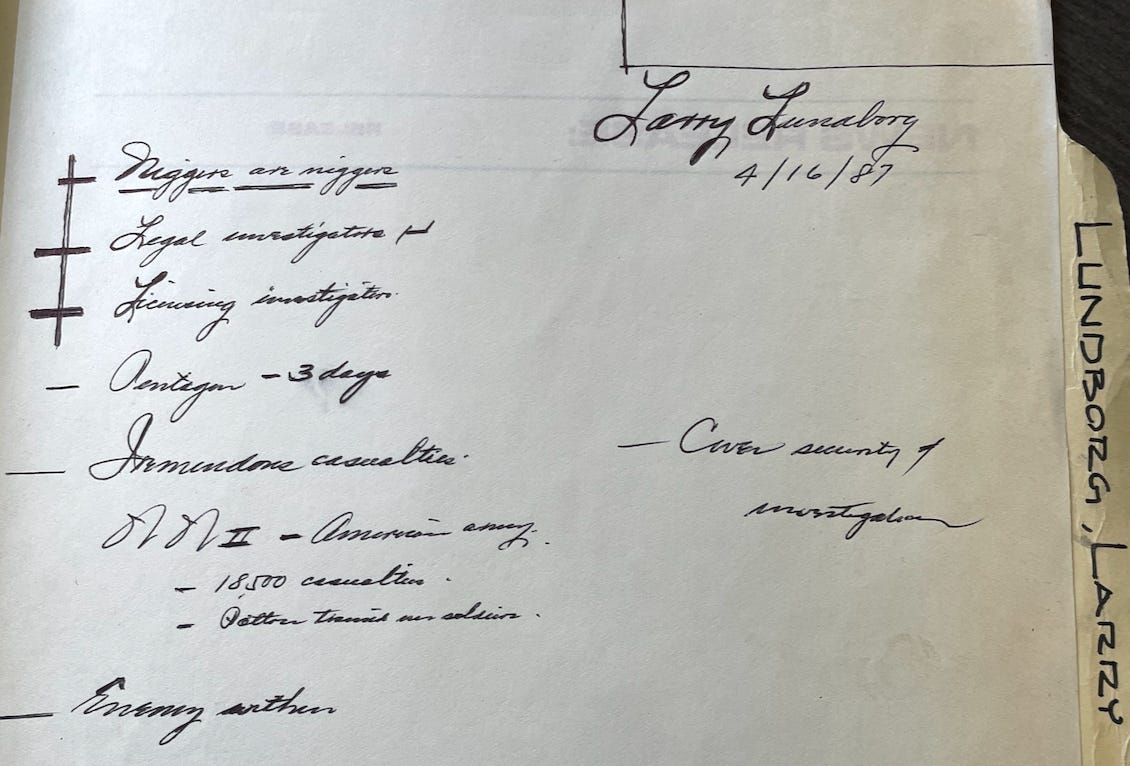 Larry Lundborg
4/16/87
Niggers are niggers
Legal investigators
Licensing investigators.
Pentagon - 3 days
Tremendous casualties.
- Cover security of
investigation
II - American army.
- 18,500 casualties.
- Patton trained our soldiers.
- Enemy within
LUNDBORG, LARRY
NEWS RELEASE
RELEASE